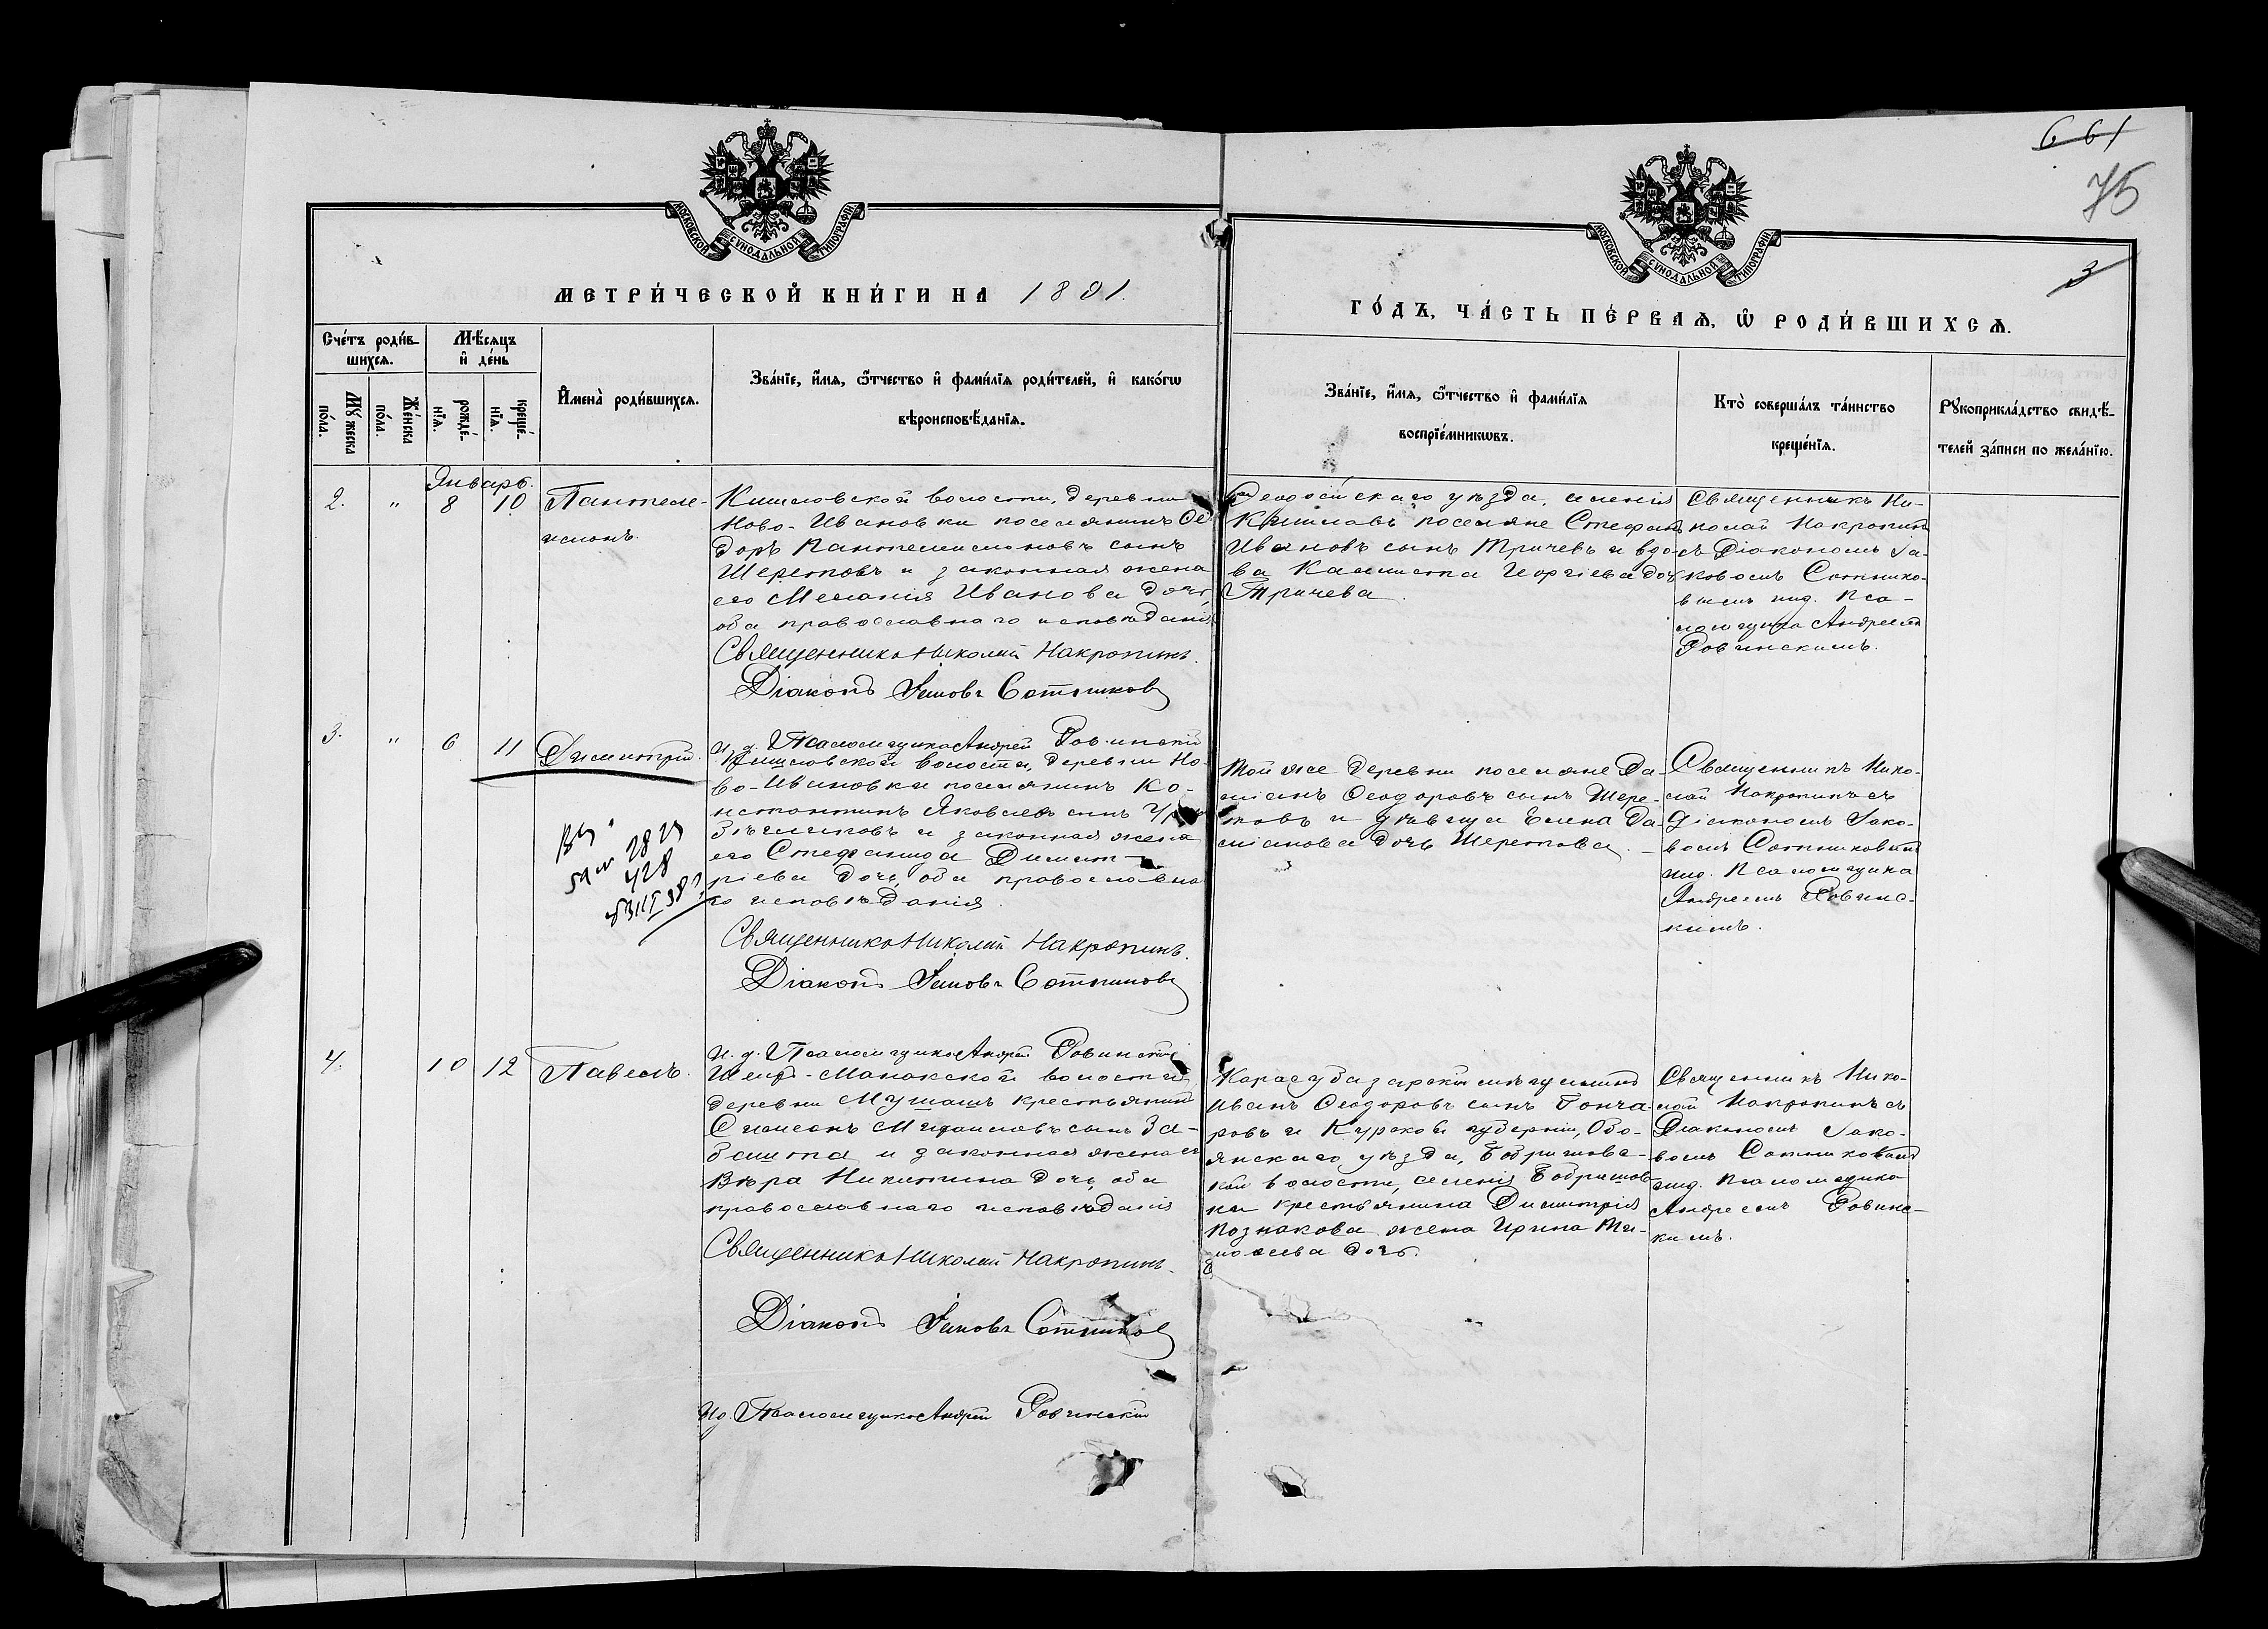 661
75
3
МОСКОВСКОЙ СѴНОДАЛЬНОЙ ТИПОГРАФІИ
МОСКОВСКОЙ СѴНОДАЛЬНОЙ ТИПОГРАФІИ
МЕТРИ́ЧЕСКОЙ КНИ́ГИ НА 1891.
ГО́ДЪ, ЧА́СТЬ ПЕ́РВАЯ, Ѡ РОДИ́ВШИХСЯ.
Сче́тъ роди́в-
шихся.
Му́жеска по́ла.
Же́нска по́ла.
Мѣ́сяцъ
и де́нь
рожде́-
нїя.
креще́-
нїя.
Имена̀ роди́вшихся.
Зва́нїе, и́мя, ѻ҆́тчество и фами́лїя роди́телей, и како́гѡ
вѣроисповѣ́данїя.
Зва́нїе, и́мя, ѻ҆́тчество и фами́лїя
воспрїе́мникѡвъ.
Кто̀ соверша́лъ та́инство
креще́нїя.
Рꙋкоприкла́дство свидѣ́-
телей за́писи по жела́нїю.
Январь.
2. " 8 10
Пантеле-
имонъ.
Кишловской волости, деревни
Ново-Ивановки поселянинъ Ѳео-
доръ Пантелеимоновъ сынъ
Шеретовъ и законная жена
его Меланія Иванова дочь,
оба православнаго исповѣданія
Священникъ Николай Накропинъ.
Діаконъ Іаковъ Сотниковъ
И. д. Псаломщика Андрей Ровинскій
Ѳеодосійскаго уѣзда, селенія
Кишлавъ поселяне Стефанъ
Ивановъ сынъ Тричевъ и вдо-
ва Калиста Георгіева дочь
Тричева.
Священникъ Ни-
колай Накропинъ
съ Діакономъ Іа-
ковомъ Сотнико-
вымъ и и.д. Пса-
ломщика Андреемъ
Ровинскимъ.
3. " 6 11
Димитрій.
428
Кишловской волости, деревни Но-
во-Ивановки поселянинъ Ко-
нстантинъ Яковлевъ сынъ
и законная жена
его Стефанида Димит-
ріева дочь, оба православна-
го исповѣданія.
Священникъ Николай Накропинъ.
Діаконъ Іаковъ Сотниковъ
И. д. Псаломщика Андрей Ровинскій
Той же деревни поселяне Да-
міанъ Ѳеодоровъ сынъ Шере-
товъ и дѣвица Елена Да-
міанова дочь Шеретова.
Священникъ Нико-
лай Накропинъ съ
Діакономъ Іако-
вомъ Сотниковымъ
и и.д. Псаломщика
Андреемъ Ровинс-
кимъ.
4. 10 12
Павелъ.
волости
деревни Мушашъ крестьянинъ
Симеонъ Михаиловъ сынъ За-
башта и законная жена его
Вѣра Никитина дочь, оба
православнаго исповѣданія
Священникъ Николай Накропинъ.
Діаконъ Іаковъ Сотниковъ
И.д. Псаломщика Андрей Ровинскій
Карасубазарскій мѣщанинъ
Иванъ Ѳеодоровъ сынъ Гонча-
ровъ и Курской губерніи, Обо-
янскаго уѣзда, Бобрышовс-
кой волости, селенія Бобрышов-
ки крестьянина Димитрія
Познакова жена Ирина Ти-
моѳеева дочь.
Священникъ Нико-
лай Накропинъ съ
Діакономъ Іако-
вомъ Сотниковымъ
и и.д. Псаломщика
Андреемъ Ровинс-
кимъ.